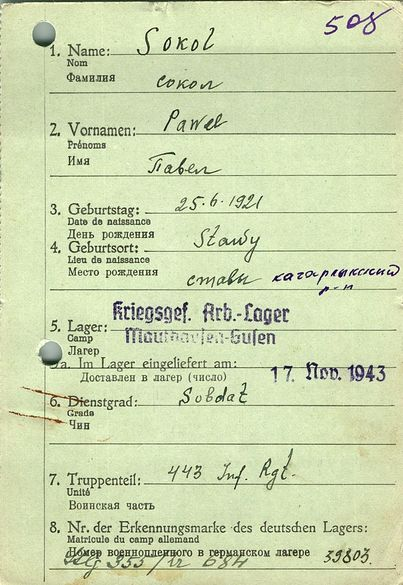 508
1. Name: Sokol
Nom
Фамилия сокол
2. Vornamen: Pawel
Prénoms
Имя Павел
3. Geburtstag: 25.6.1921
Date de naissance
День рождения
4. Geburtsort: Stawy
Lieu de naissance
Место рождения ставы кагарлыкский
р-н
5. Lager: Kriegsgef. Arb.-Lager
Camp Mauthausen-Gusen
Лагерь
5a. Im Lager eingeliefert am:
Доставлен в лагерь (число) 17. Nov. 1943
6. Dienstgrad: Soldat
Grade
Чин
7. Truppenteil: 443 Inf. Rgt.
Unité
Воинская часть
8. Nr. der Erkennungsmarke des deutschen Lagers:
Matricule du camp allemand
Номер военнопленного в германском лагере 39803.
355/ 684